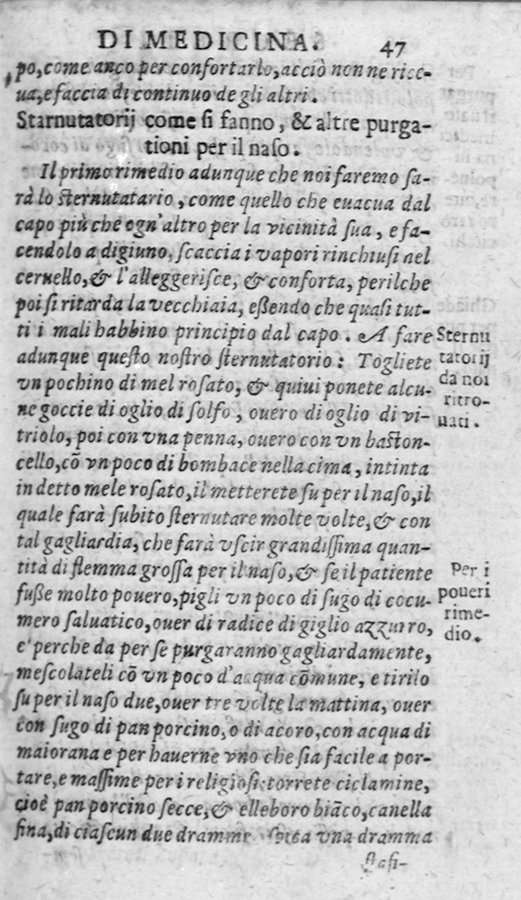 DI MEDICINA. 47
po, come anco per confortarlo, acciò non ne rice-
ua, e faccia di continuo de gli altri.
Starnutatorij come si fanno, & altre purga-
tioni per il naso.
Il primo rimedio adunque che noi faremo sa-
rà lo sternutatario, come quello che euacua dal
capo più che ogn'altro per la vicinità sua, e fa-
cendolo a digiuno, scaccia i vapori rinchiusi nel
ceruello, & l'alleggerisce, & conforta, perilche
poi si ritarda la vecchiaia, eßendo che quasi tut-
ti i mali habbino principio dal capo. A fare
adunque questo nostro sternutatorio: Togliete
vn pochino di mel rosato, & quiui ponete alcu-
ne goccie di oglio di solfo, ouero di oglio di vi-
triolo, poi con vna penna, ouero con vn baston-
cello, cõ vn poco di bombace nella cima, intinta
in detto mele rosato, il metterete su per il naso, il
quale farà subito sternutare molte volte, & con
tal gagliardia, che farà vscir grandissima quan-
tità di flemma grossa per il naso, & se il patiente
fuße molto pouero, pigli vn poco di sugo di cocu-
mero saluatico, ouer di radice di giglio azzurro,
e perche da per se purgaranno gagliardamente,
mescolateli cõ vn poco d'acqua cõmune, e tirilo
su per il naso due, ouer tre volte la mattina, ouer
con sugo di pan porcino, o di acoro, con acqua di
maiorana e per hauerne vno che sia facile a por-
tare, e massime per i religiosi: torrete ciclamine,
cioè pan porcino secce, & elleboro biãco, canella
fina, di ciascun due dramme spica vna dramma
stafi-
Sternu
tatorij
da noi
ritro-
uati.
Per i
poueri
rime-
dio.